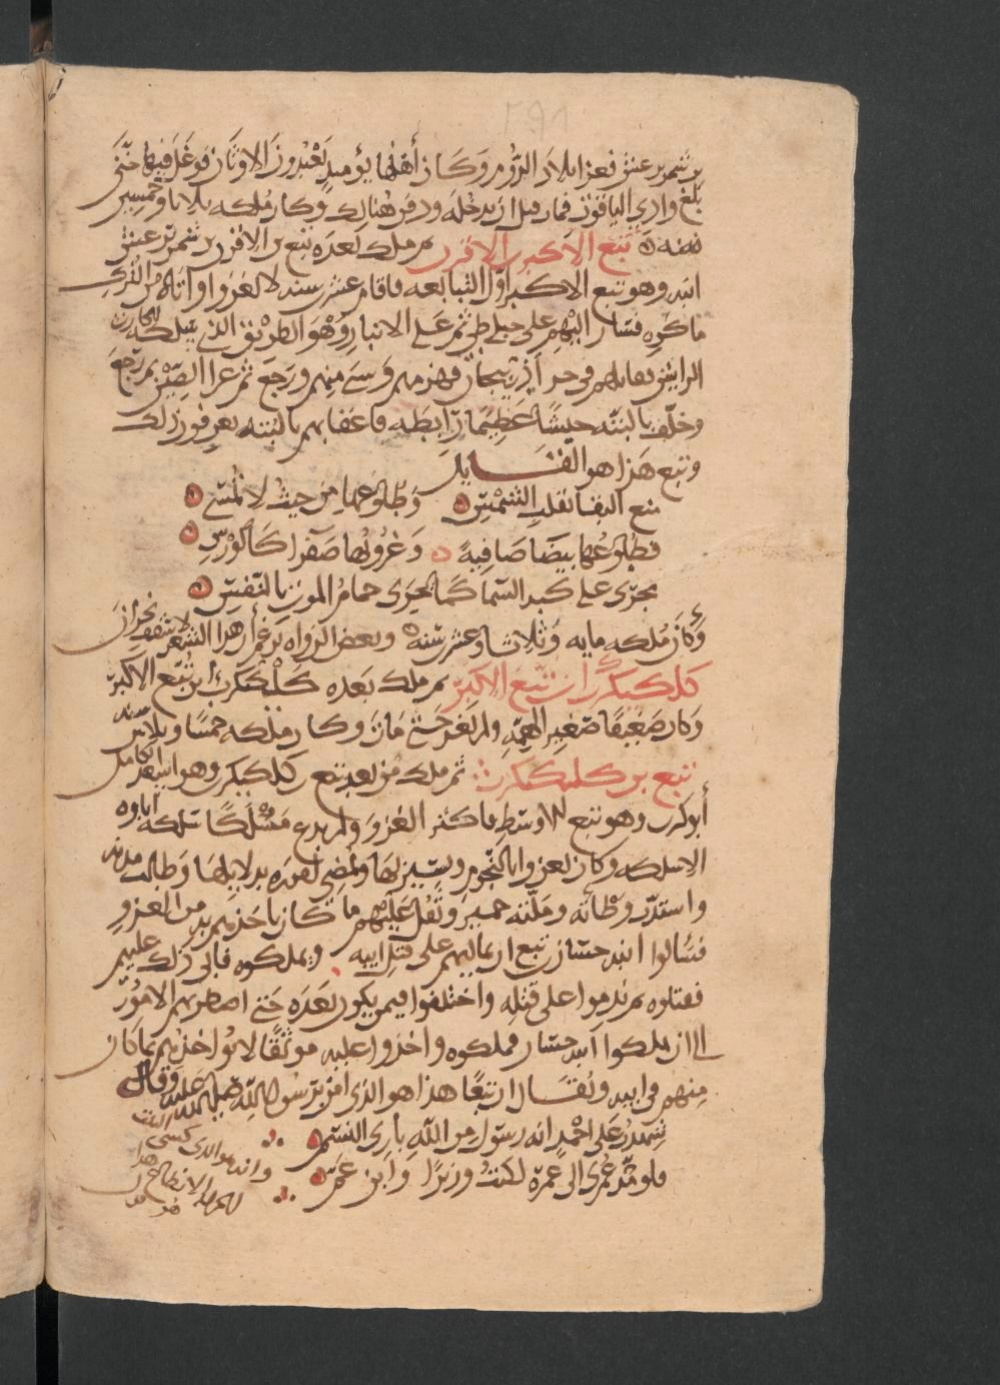 بن شمر يرعش فغزا بلاد الروم وكان أهلها يومئذ يعبدون الاوثان فوغل فيها حتى
بلغ وادي الياقوت فمات قبل ان يدخله ودفن هنالك وكان ملكه ثلاثا وخمسين
سنه تبع الاكبر بن الاقرن ثم ملك بعده تبع بن الاقرن بن شمر يرعش
ابنه وهو تبع الاكبر اول التبابعه فاقام عشرين سنه لا يغزوا واتاه من الترك
ما كره فسار اليهم على جبلي طي ثم على الانبار وهو الطريق الذي سلكه
الرايش فلقيهم في حد أذربيجان فهزمهم وسبى منهم ورجع ثم غزا الصين ثم رجع
وخلف بالتبت جيشا عظيما رابطه فاعقابهم بالتبت يعرفون ذلك
وتبع هذا هو القايل
منع البقا تقلب الشمس وطلوعها من حيث لا تمسي
فطلوعها بيضا صافية وغروبها صفرا كالورس
تجري على كبد السما كما يجري حمام الموت بالنفس
وكان ملكه مايه وثلاثا وعشرين سنه وبعض الرواه يزعم أن هذا الشعر لاسقف نجران
كلكيكرب ابن تبع الاكبر ثم ملك بعده كلكيكرب ابن تبع الاكبر
وكان ضعيفا صغير الهمة ولم يغز حتى مات وكان ملكه خمسا وثلاثين سنه
تبع بن كليكيكرب ثم ملك من بعده تبع بن كلكيكرب وهو اسعد الكامل
أبو كرب وهو تبع الاوسط فاكثر الغزو ولم يدع مسلكا سلكه اباوه
الا سلكه وكان يغزوا بالنجوم ويسير بها ويمضي اموره بدلايلها وطالت مدته
واشتدت وطاته وملته حمير وثقل عليهم ما كان ياخذهم به من الغزو
فسالوا ابنه حسان بن تبع ان يماليهم على قتل ابيه ويملكوه فابى ذلك عليهم
فقتلوه ثم ندموا على قتله واختلفوا فيمن يكون بعده حتى اضطرتهم الامور
الى ان يملكوا ابنه حسان فملكوه واخذوا عليه موثقا لا يؤاخذهم بما كان
منهم في ابيه ويقال ان تبعا هذا هو الذي امن برسول الله صلى الله عليه وقال
شهدت على احمد انه رسول من الله باري النسم
فلو مد عمري الى عمره لكنت وزيرا وابن عم
وانه هو الذي كسى البيت
الانطاع